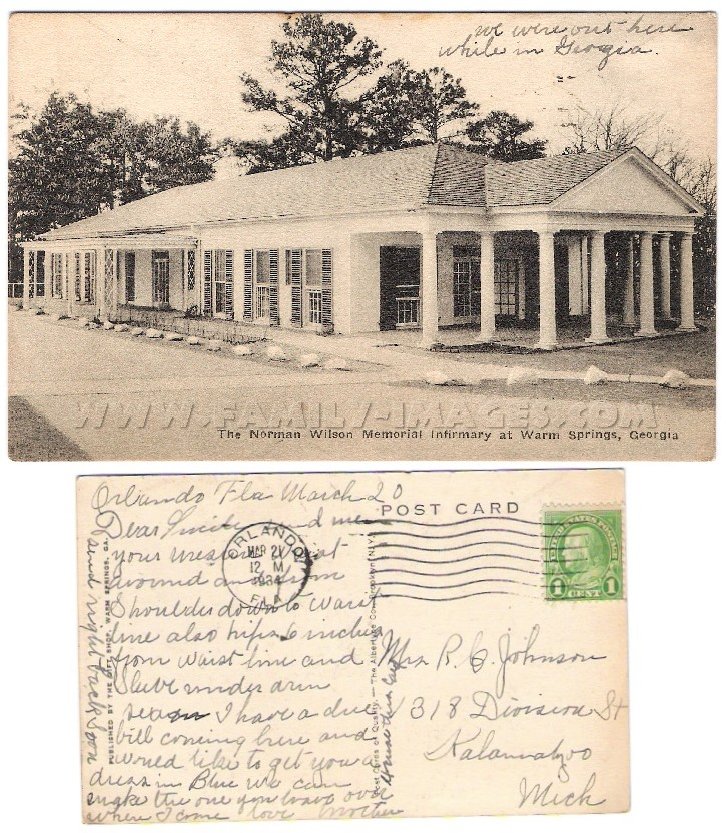 we were out here
while in Georgia.
WWW.FAMILY-IMAGES.COM
The Norman Wilson Memorial Infirmary at Warm Springs, Georgia
Orlando Fla March 20
POST CARD
Dear send me
your measurement
around arm
Shoulder down to waist
line also hips 6 inches
from waist line and
Sleeve under arm
seam I have a due
bill coming here and
would like to get you a
dress in Blue we can
make the one you have over
when I come love Mother
send right back soon
PUBLISHED BY THE GIFT SHOP, WARM SPRINGS, GA.
ORLANDO
MAR 21
12 M
1934
FLA
UNITED STATES POSTAGE
1 CENT 1
Post Cards of Quality. — The Albertype Co., Brooklyn, N.Y.
Mrs R. C. Johnson
1318 Division St
Kalamazoo
Mich